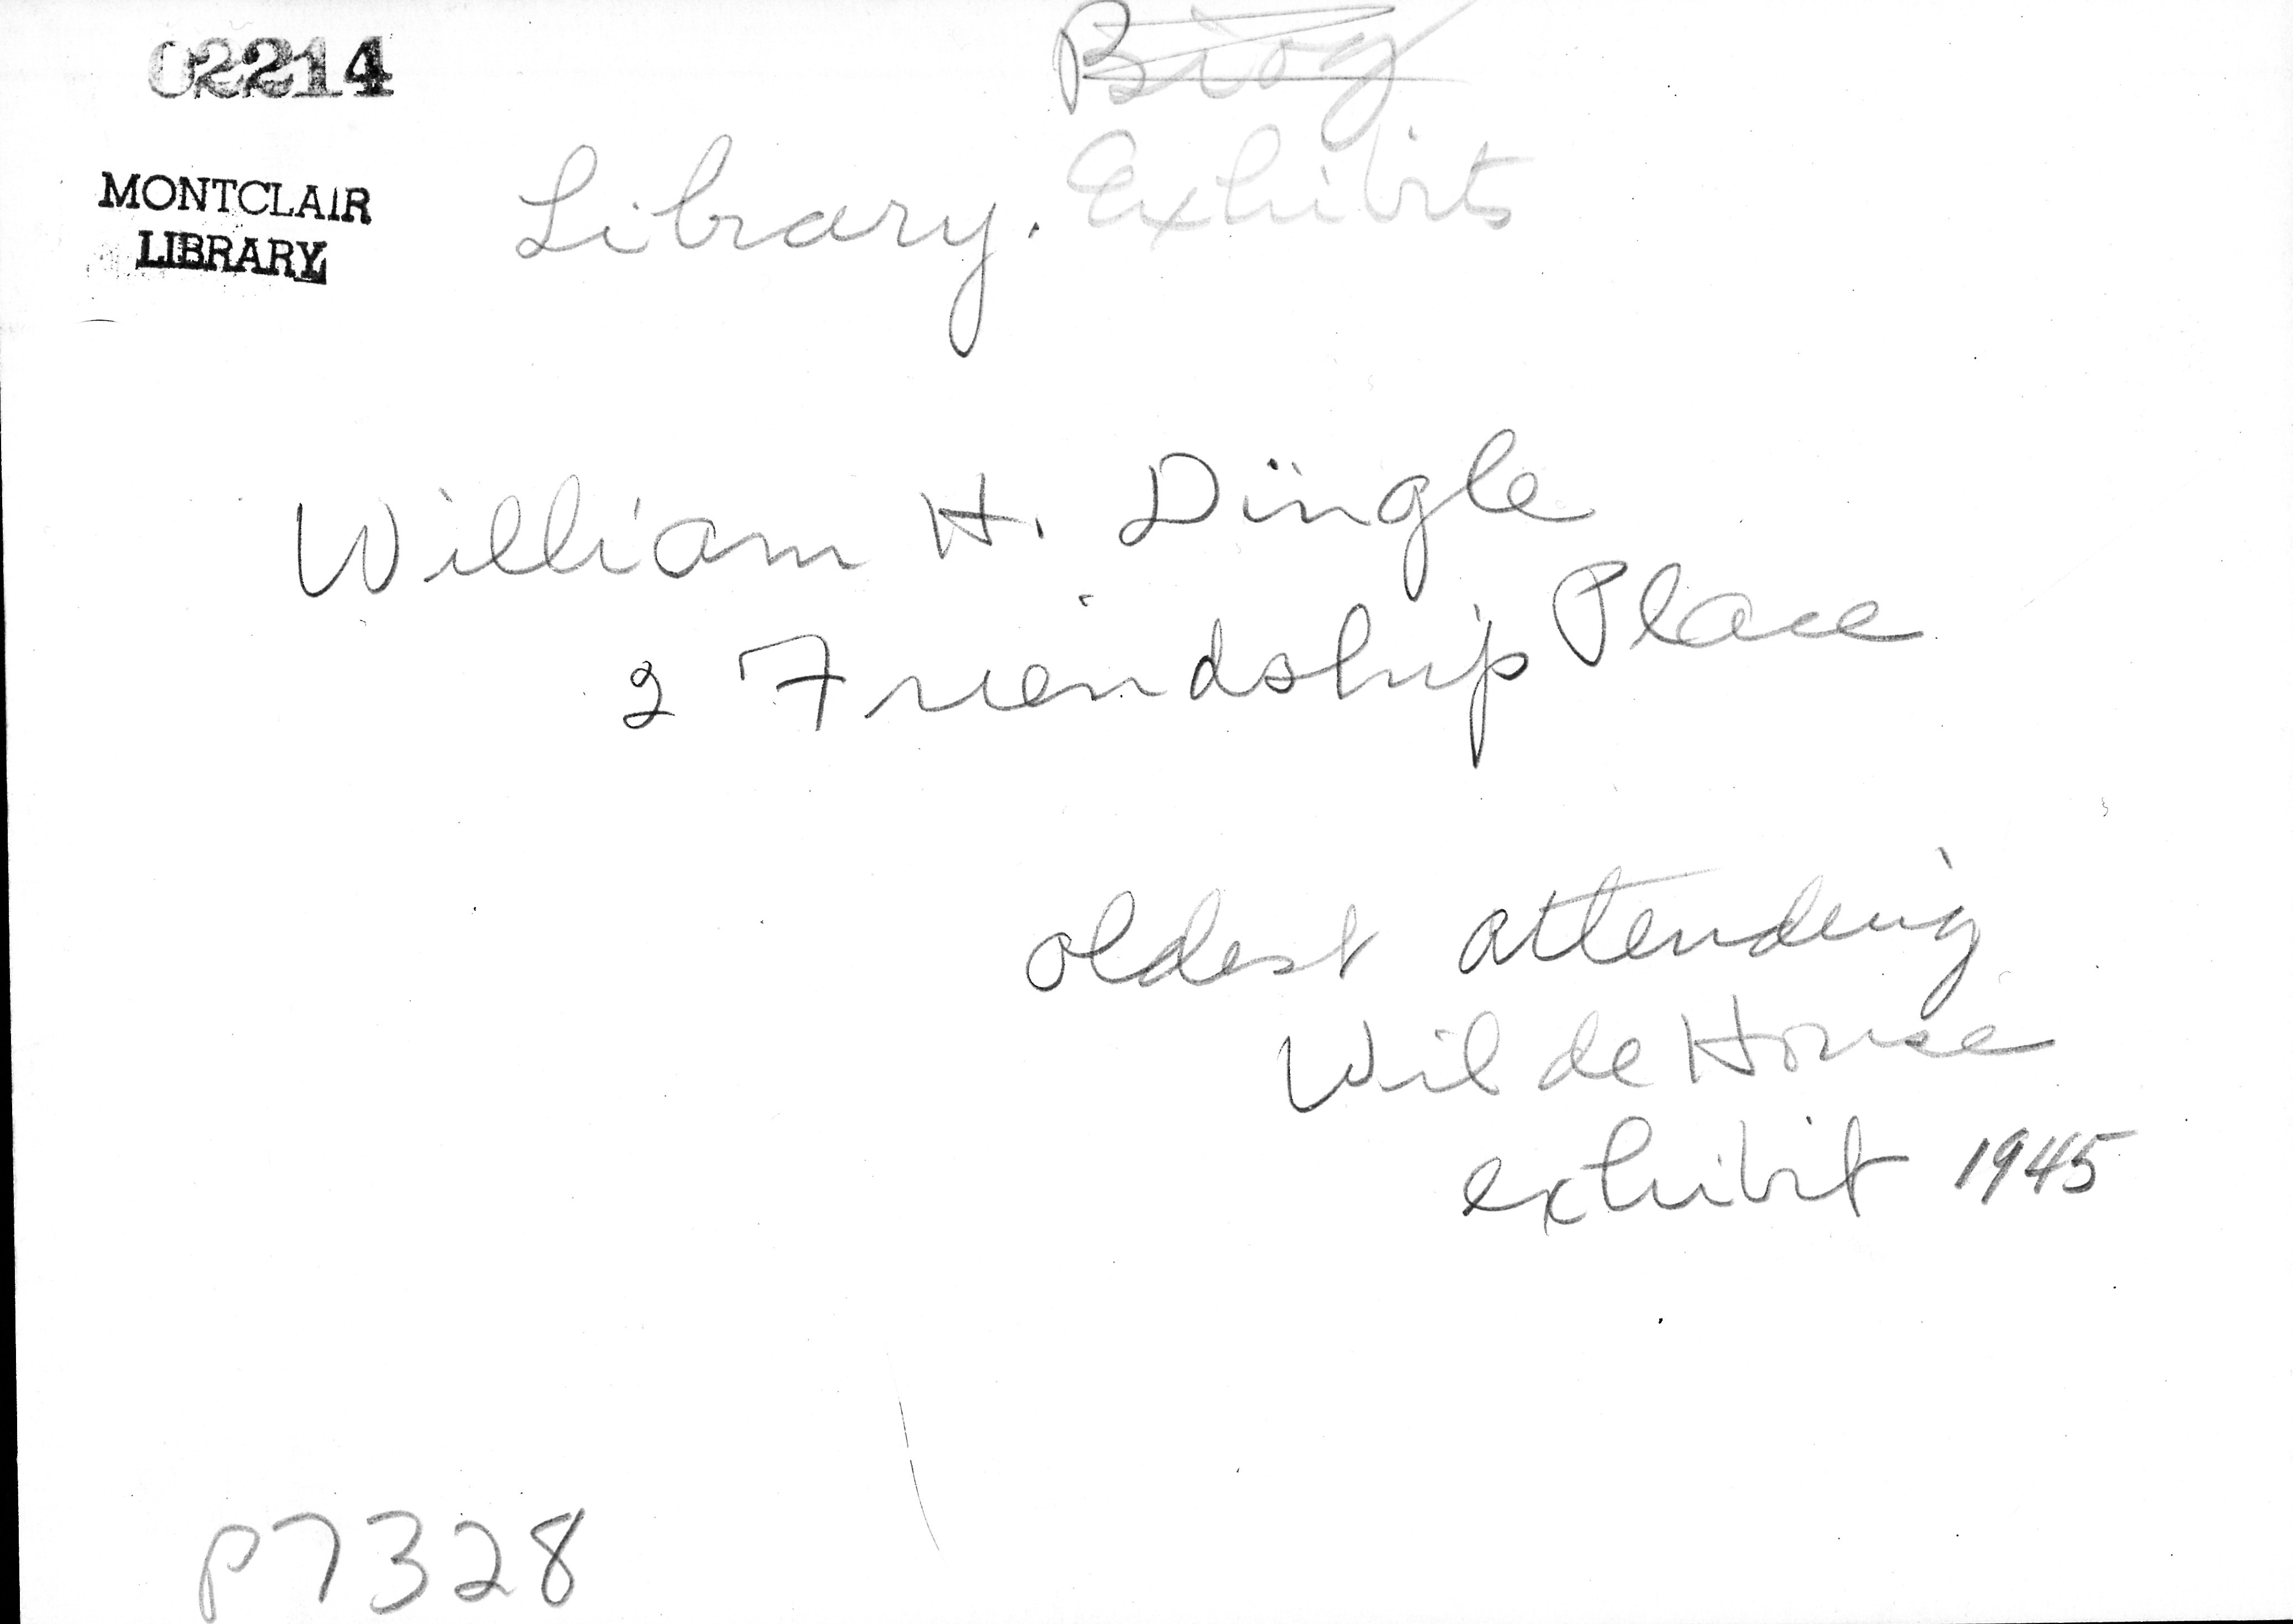 02214
Biog
MONTCLAIR
LIBRARY
Library. Exhibits
William H. Dingle
2 Friendship Place
oldest attending
Wilde House
exhibit 1945
P7328